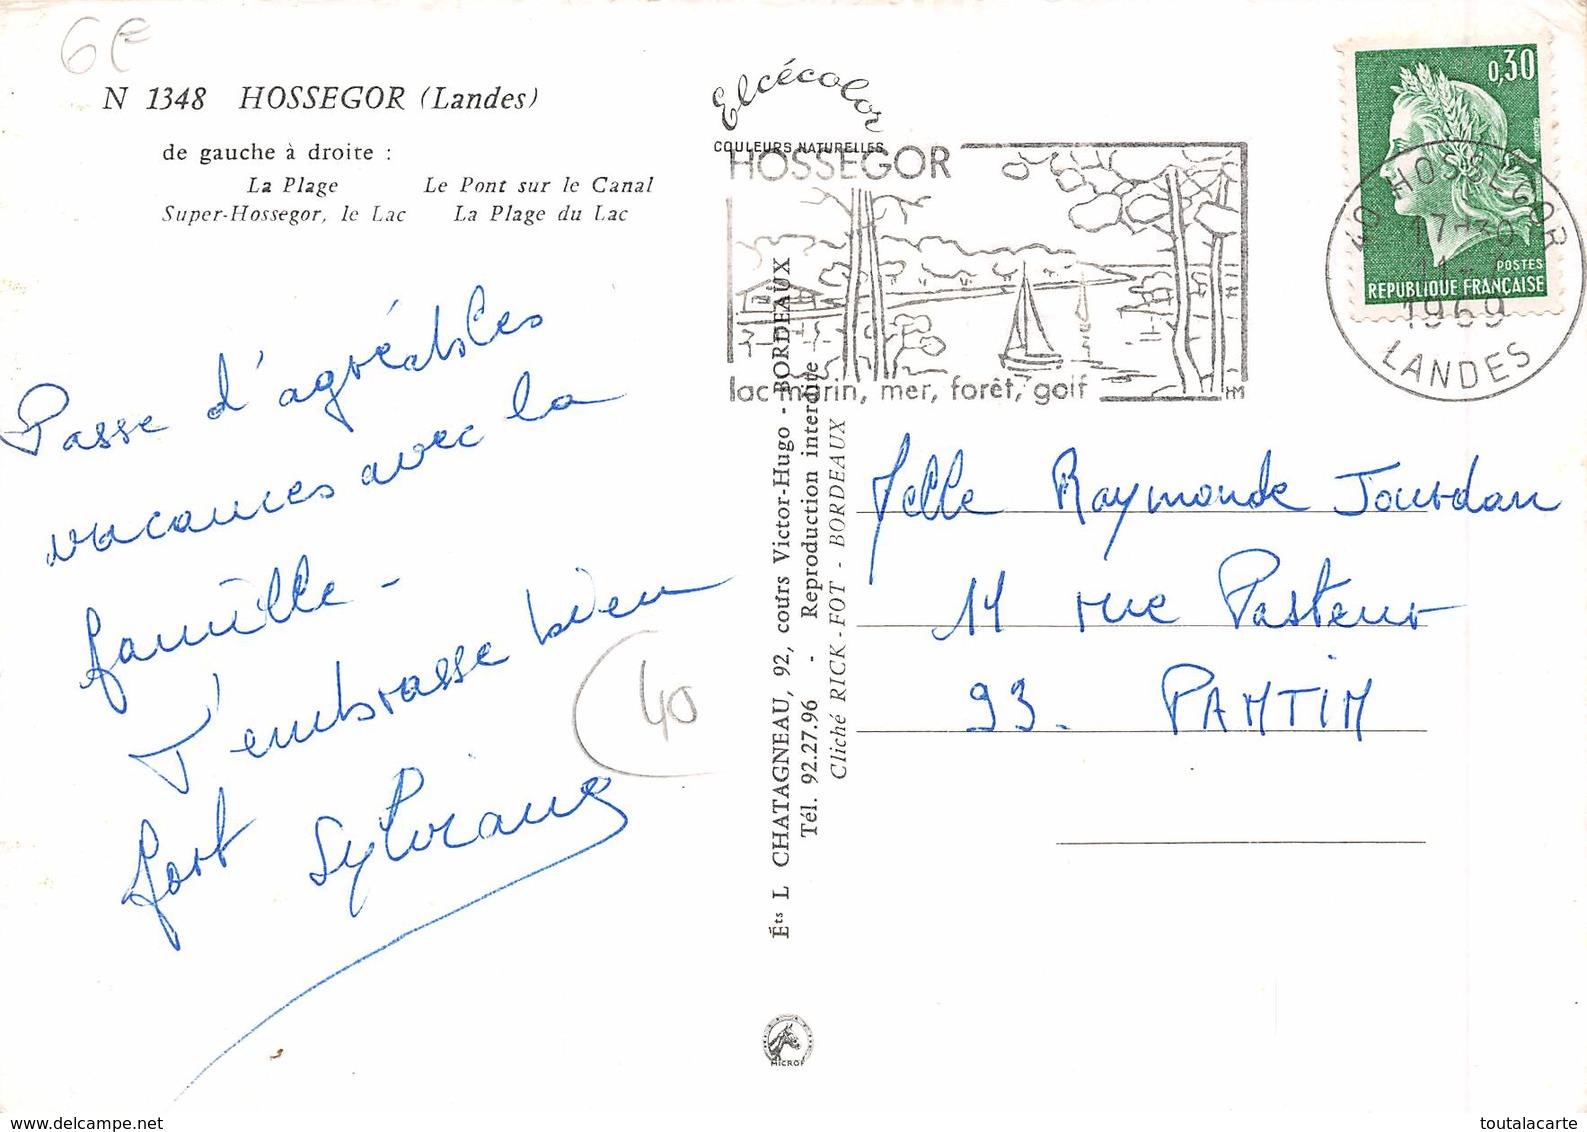 6€
N 1348 HOSSEGOR (Landes)
de gauche à droite :
La Plage Le Pont sur le Canal
Super-Hossegor, le Lac La Plage du Lac
Passe d'agréables
vacances avec la
famille -
T'embrasse bien
fort Sylviane
40
Elcécolor
COULEURS NATURELLES
HOSSEGOR
lac marin, mer, forêt, golf
HM
Éts L CHATAGNEAU, 92, cours Victor-Hugo - BORDEAUX
Tél. 92.27.96 - Reproduction interdite
Cliché RICK-FOT - BORDEAUX
MICROF
0,30
POSTES
REPUBLIQUE FRANÇAISE
40 HOSSEGOR
17-30
1969
LANDES
Melle Raymonde Jourdan
11 rue Pasteur
93. PANTIN
delcampe.net
toutalacarte